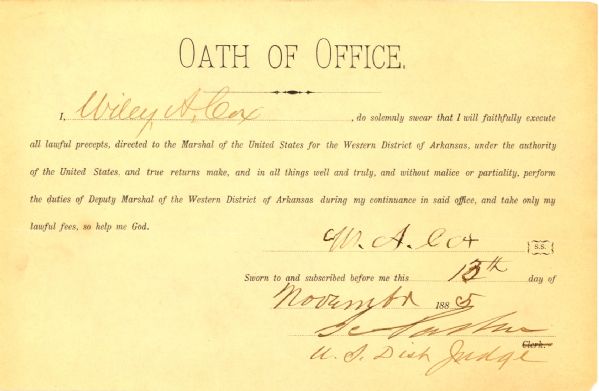 OATH OF OFFICE.
I, Wiley A. Cox, do solemnly swear that I will faithfully execute
all lawful precepts, directed to the Marshal of the United States for the Western District of Arkansas, under the authority
of the United States, and true returns make, and in all things well and truly, and without malice or partiality, perform
the duties of Deputy Marshal of the Western District of Arkansas during my continuance in said office, and take only my
lawful fees, so help me God.
W. A. Cox S.S.
Sworn to and subscribed before me this 13th day of
November 1885
Clerk.
U. S. Dist Judge